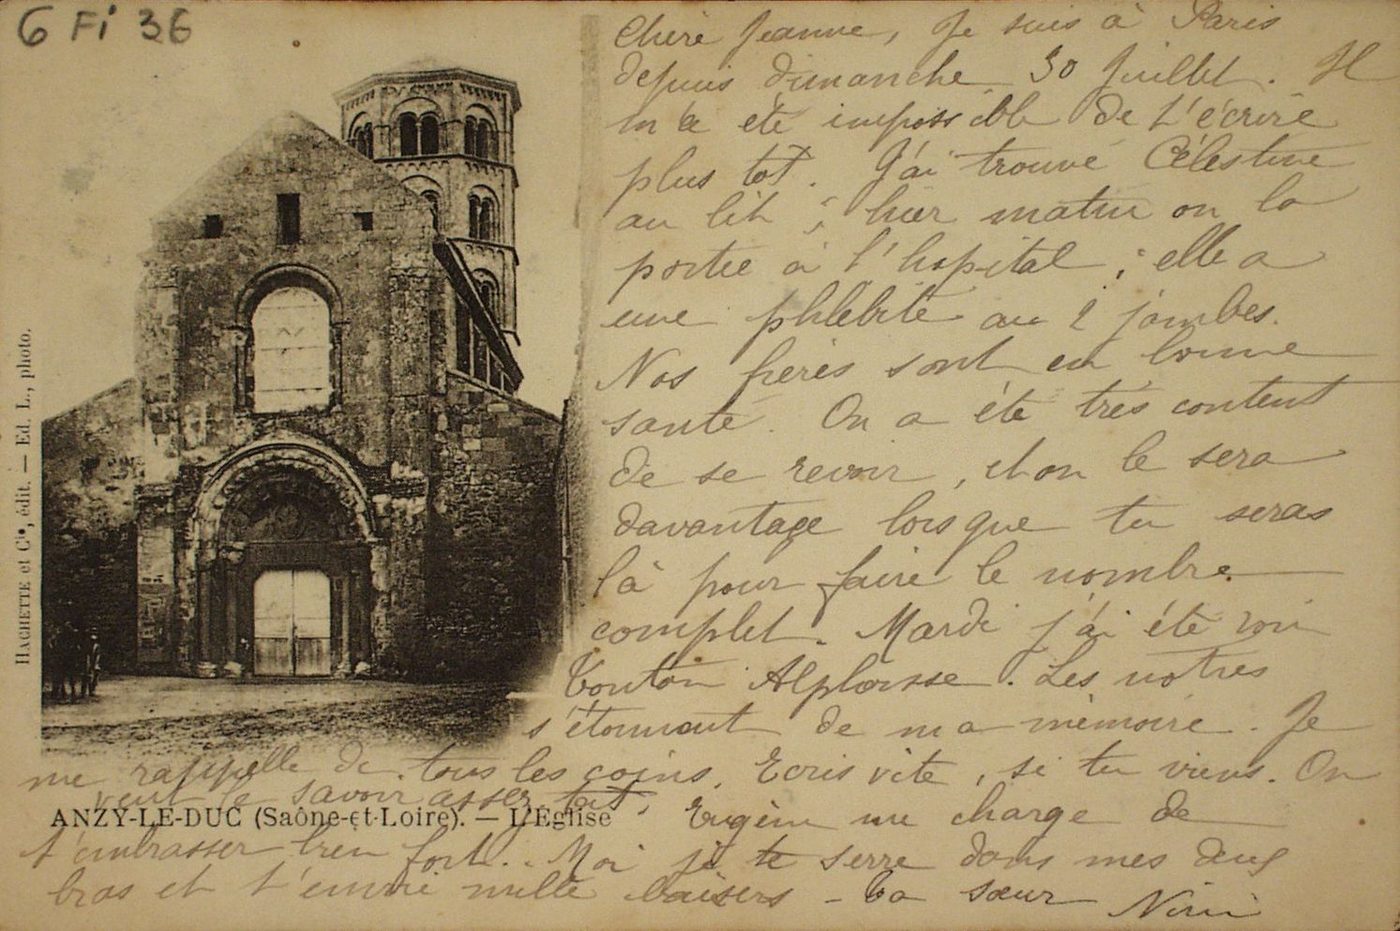 6 Fi 36
Chère Jeanne, Je suis à Paris
depuis dimanche 30 Juillet. Il
m'a été impossible de t'écrire
plus tôt. J'ai trouvé Célestine
au lit ; hier matin on la
portée à l'hopital ; elle a
une phlébite au 2 jambes.
Nos frères sont en bonne
santé. On a été très content
de se revoir, et on le sera
davantage lorsque tu seras
là pour faire le nombre
complet. Mardi j'ai été voir
Tonton . Les notres
s'étonnant de ma mémoire. Je
me rappelle de tous les coins. Ecris vite, si tu viens. On
veut le savoir assez tôt,
ANZY-LE-DUC (Saône-et-Loire). — L'Eglise
Eugène me charge de
t'embrasser bien fort. Moi je te serre dans mes deux
bras et t'envoi mille baisers - Ta sœur Nini
HACHETTE et Cie, édit. — Ed. L., photo.